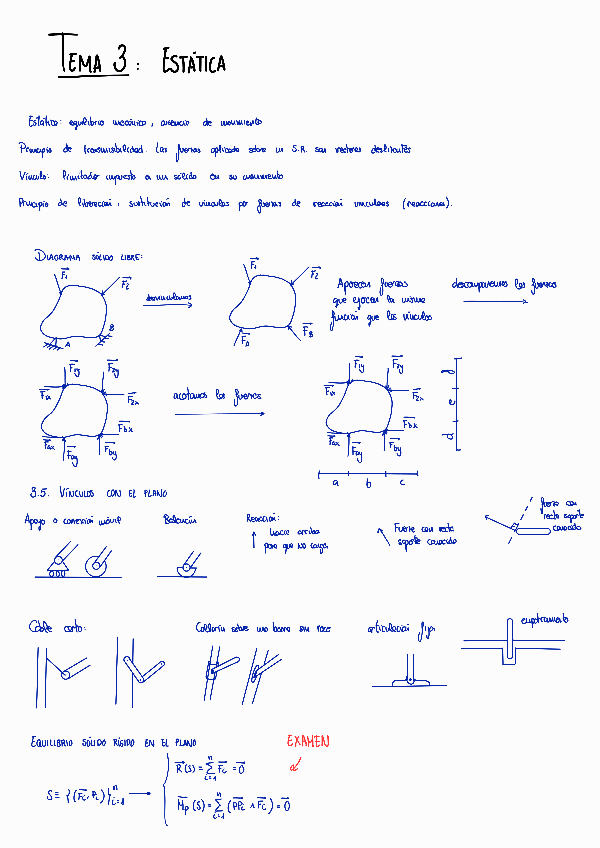 TEMA 3: ESTÁTICA
Estática: equilibrio mecánico, ausencia de movimiento
Principio de transmisibilidad. Las fuerzas aplicadas sobre un S.R. son vectores deslizantes
Vínculo: limitador impuesto a un sólido en su movimiento
Principio de liberación: sustitución de vínculos por fuerzas de reacción vinculares (reacciones).
DIAGRAMA SÓLIDO LIBRE:
F1 F2 A B
desvinculamos
F1 F2 FA FB
Aparecen fuerzas
que ejercen la misma
función que los vínculos
descomponemos las fuerzas
F1y F2y F1x F2x Fax Fay Fbx Fby
acotamos las fuerzas
F1y F2y F1x F2x Fax Fay Fbx Fby
f e d
a b c
3.5. VÍNCULOS CON EL PLANO
Apoyo o conexión móvil
Balancín
Reacción:
hacia arriba
para que no caiga
Fuerza con recta
soporte conocida
fuerza con
recta soporte
conocida
Cable corto:
Collarín sobre una barra sin roce
articulación fija
empotramiento
EQUILIBRIO SÓLIDO RÍGIDO EN EL PLANO
EXAMEN
S ≡ {(Fi, Pi)}ⁿi=1
R(S) = Σⁿi=1 Fi = 0
Mp(S) = Σⁿi=1 (PPi ∧ Fi) = 0